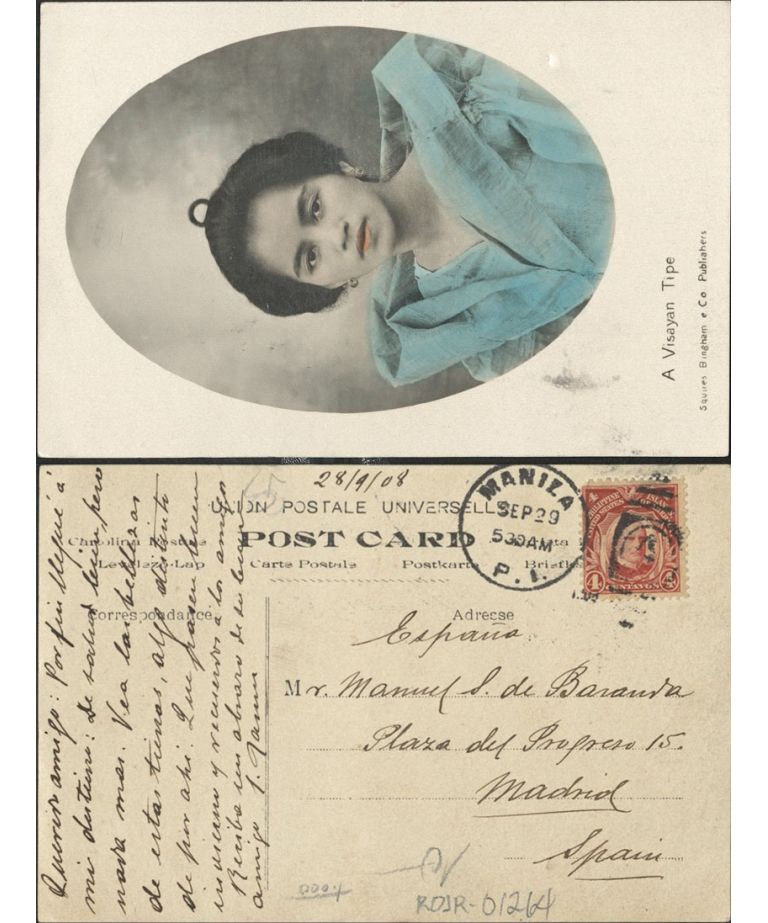 A Visayan Tipe
Squires Bingham e Co Publishers
28/9/08
UNION POSTALE UNIVERSELLE
POST CARD
Carte Postale Postkarte
Correspondance Adresse
MANILA
SEP 29
530AM
P. I.
PHILIPPINE ISLANDS
UNITED STATES OF AMERICA
4 CENTAVOS 4
España
Mr. Manuel S. de Baranda
Plaza del Progreso 15.
Madrid
Spain
Querido amigo: Por fin llegué á
mi destino: De salud bien, pero
nada mas. Vea las bellezas
de estas tierras, algo distinto
de por ahi. Que pasen buen
invierno y recuerdos á los amigos
Reciba un abrazo de su buen
amigo
RDJR-01264